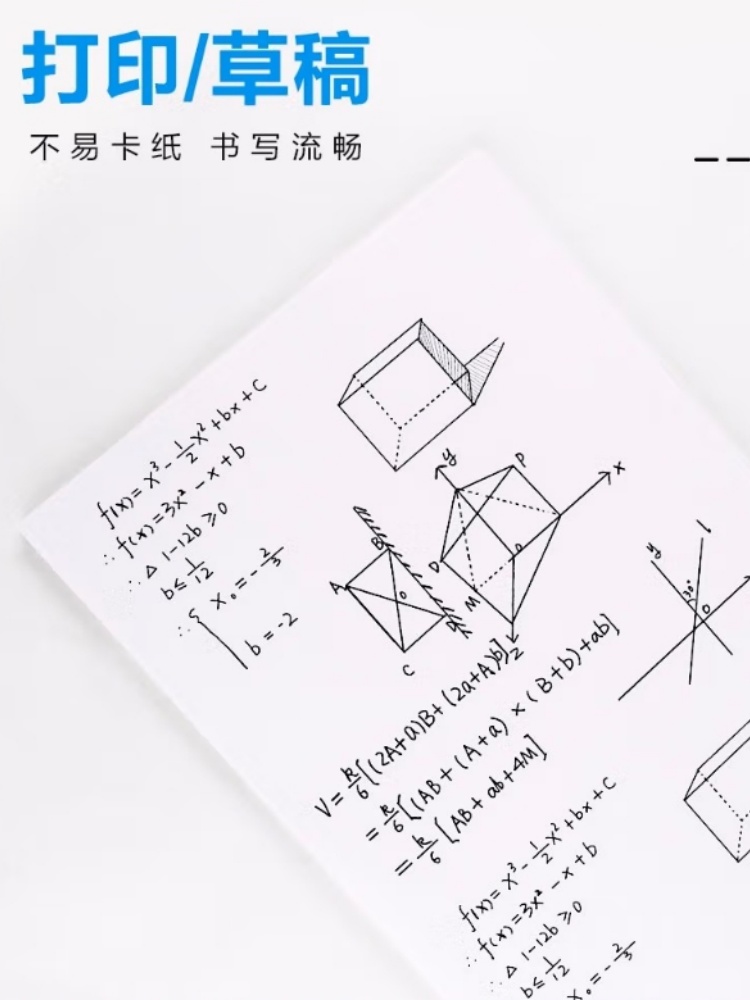 打印/草稿
不易卡纸 书写流畅
f(x)=x³-½x²+bx+c
∴ f(x)=3x²-x+b
∴ △ 1-12b≥0
b≤1/12
∴ { x₀=-2/3
b=-2
y
P
x
B
A
O
D
C
D
O
M
Z
y
l
30°
O
V=k/6[(2A+a)B+(2a+A)b]
=k/6[(AB+(A+a)×(B+b)+ab]
=k/6[AB+ab+4M]
f(x)=x³-½x²+bx+c
∴ f(x)=3x²-x+b
∴ △ 1-12b≥0
b≤1/12
x₀=-2/3